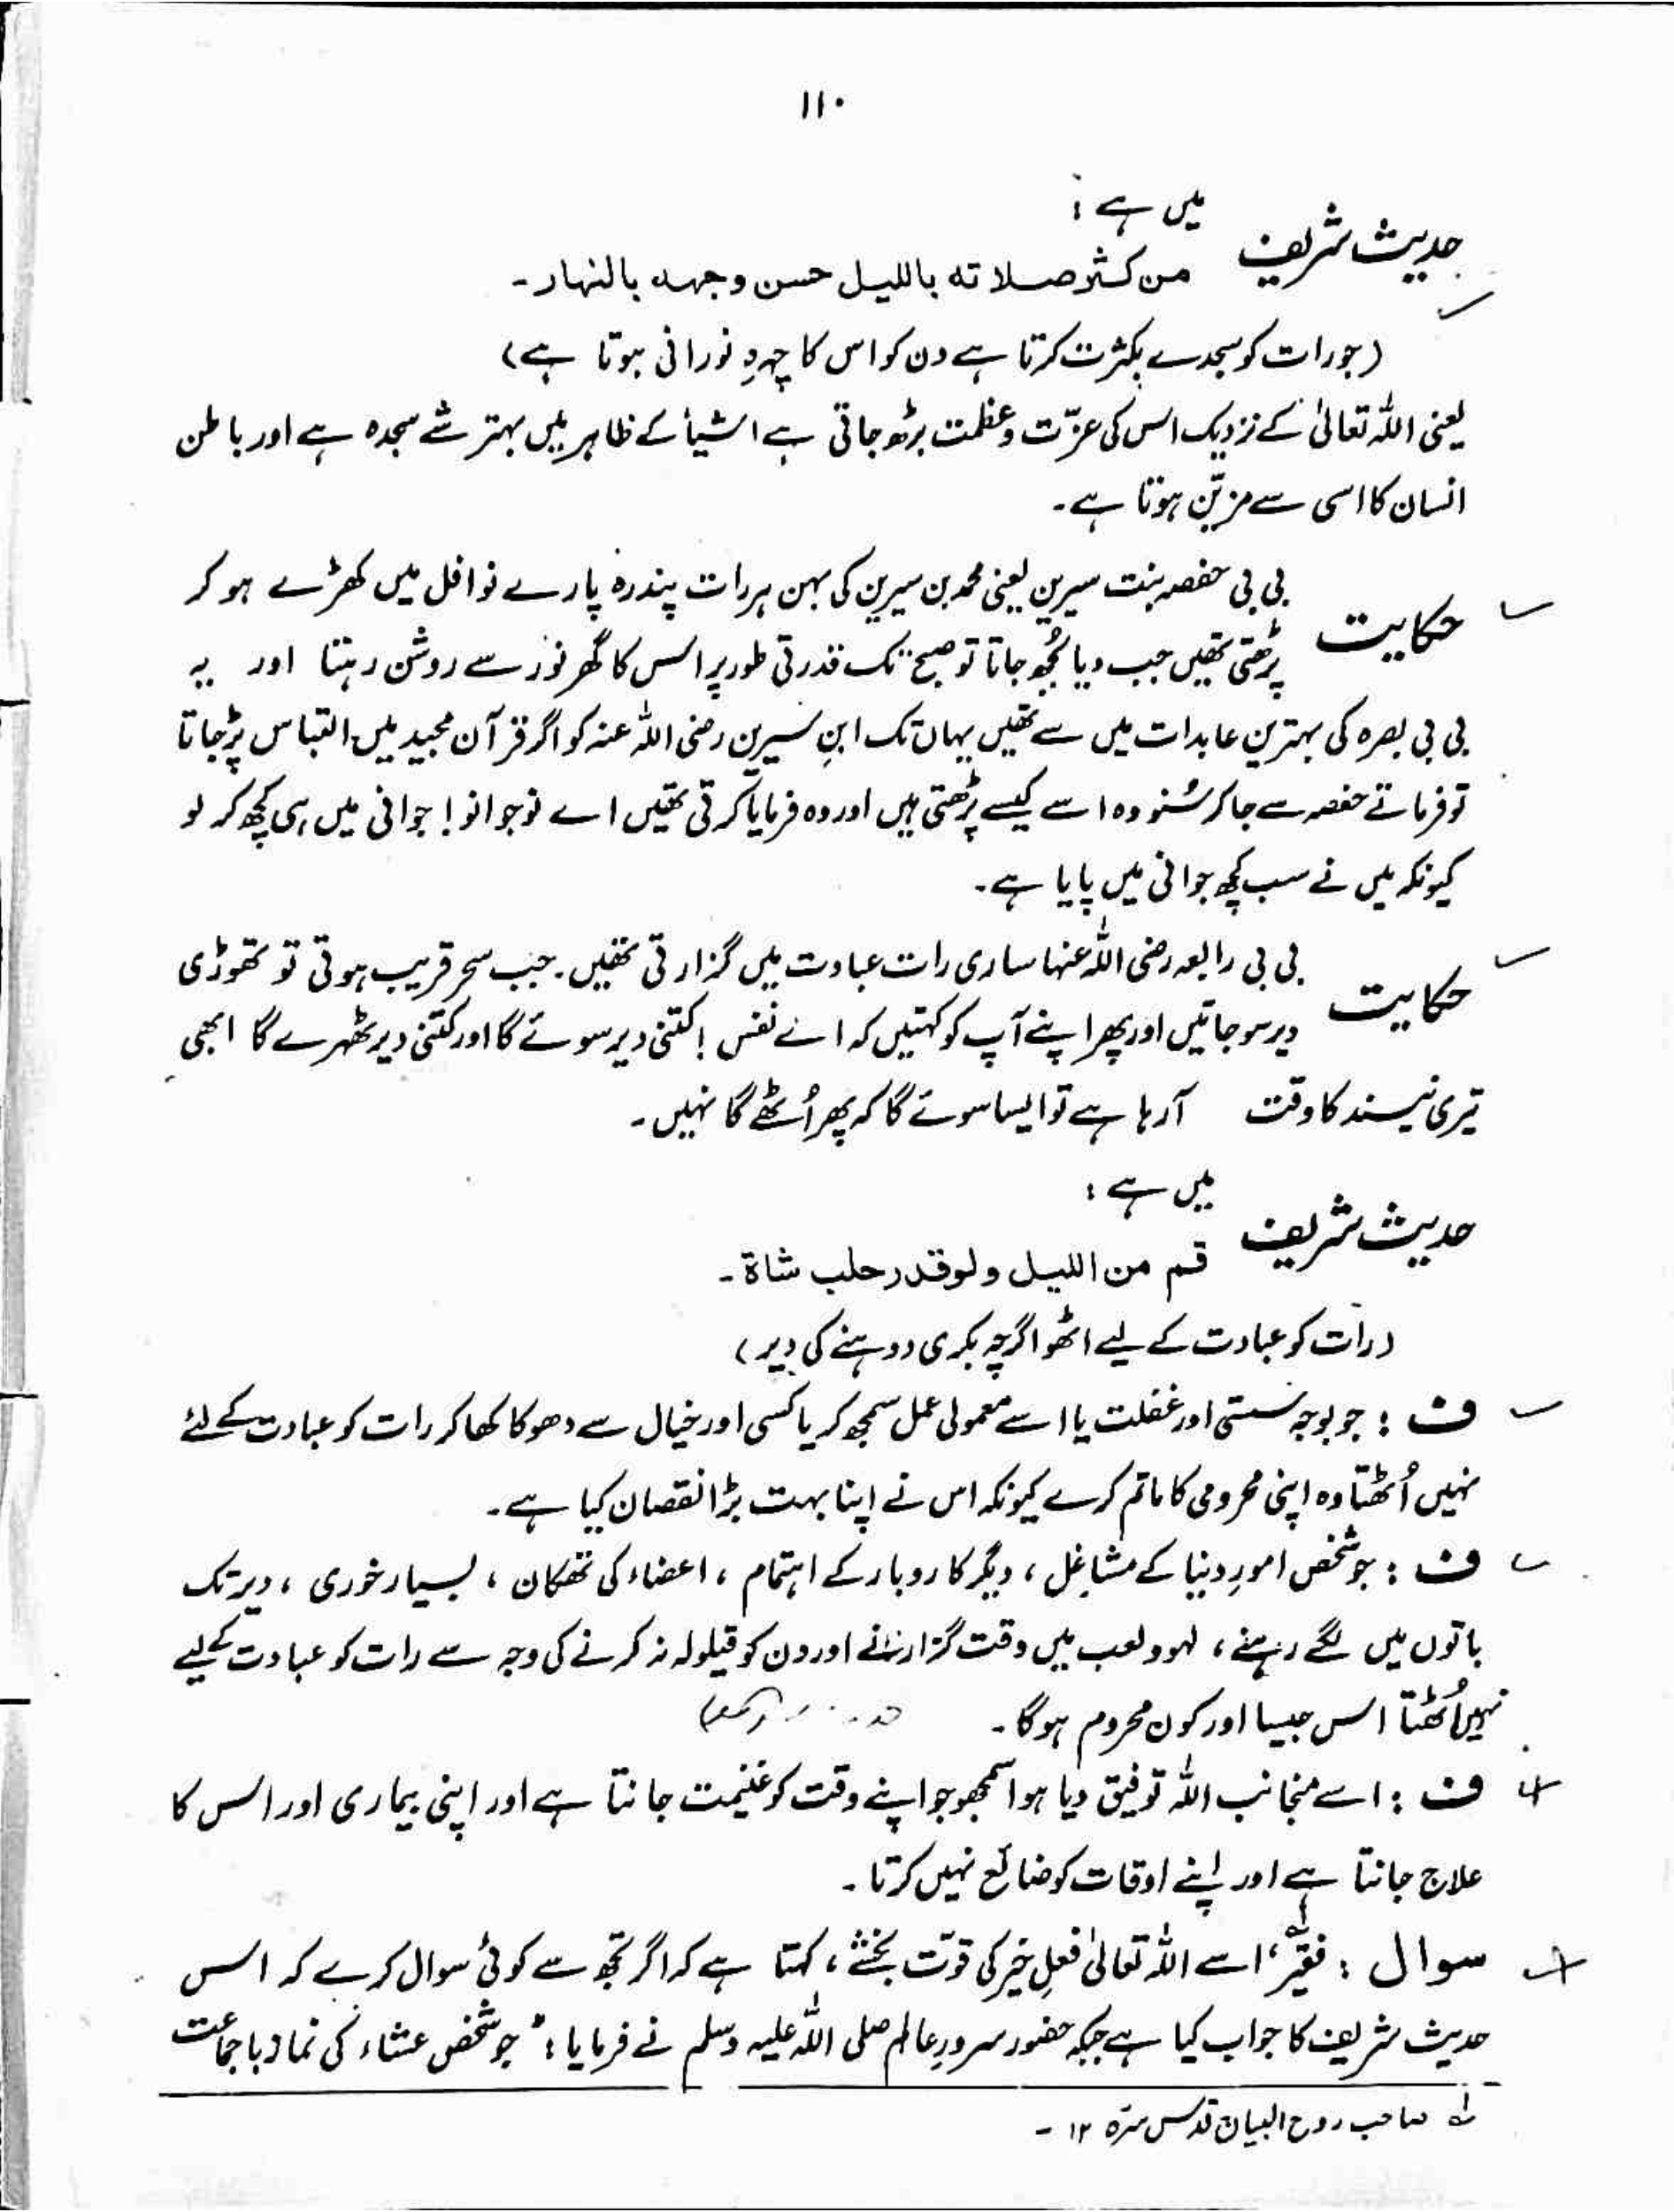 ۱۱۰
حدیث شریف میں ہے :
من کثر صلاته بالليل حسن وجهه بالنهار ۔
(جو رات کو سجدے بکثرت کرتا ہے دن کو اس کا چہرہِ نورانی ہوتا ہے)
یعنی اللہ تعالیٰ کے نزدیک اس کی عزّت و عظمت بڑھ جاتی ہے اشیأ کے ظاہر میں بہتر شے سجدہ ہے اور باطن
انسان کا اسی سے مزیّن ہوتا ہے ۔
حکایت بی بی حفصہ بنت سیرین یعنی محمد بن سیرین کی بہن ہر رات پندرہ پارے نوافل میں کھڑے ہو کر
پڑھتی تھیں جب دیا بُجھ جاتا تو صبح تک قدرتی طور پر اس کا گھر نور سے روشن رہتا اور یہ
بی بی بصرہ کی بہترین عابدات میں سے تھیں یہاں تک ابنِ سیرین رضی اللہ عنہ کو اگر قرآن مجید میں التباس پڑجاتا
تو فرماتے حفصہ سے جا کر سُنو وہ اسے کیسے پڑھتی ہیں اور وہ فرمایا کرتی تھیں اے نوجوانو! جوانی میں ہی کچھ کر لو
کیونکہ میں نے سب کچھ جوانی میں پایا ہے ۔
حکایت بی بی رابعہ رضی اللہ عنہا ساری رات عبادت میں گزارتی تھیں ۔ جب سحر قریب ہوتی تو تھوڑی
دیر سو جاتیں اور پھر اپنے آپ کو کہتیں کہ اے نفس! کتنی دیر سوئے گا اور کتنی دیر ٹھہرے گا ابھی
تیری نیند کا وقت آ رہا ہے تو ایسا سوئے گا کہ پھر اُٹھے گا نہیں ۔
حدیث شریف میں ہے :
قم من الليل ولو قدر حلب شاة ۔
(رات کو عبادت کے لیے اٹھو اگرچہ بکری دوہنے کی دیر)
ف : جو بوجہ سستی اور غفلت یا اسے معمولی عمل سمجھ کر یا کسی اور خیال سے دھوکا کھا کر رات کو عبادت کے لئے
نہیں اُٹھتا وہ اپنی محرومی کا ماتم کرے کیونکہ اس نے اپنا بہت بڑا نقصان کیا ہے ۔
ف : جو شخص امورِ دنیا کے مشاغل ، دیگر کاروبار کے اہتمام ، اعضاء کی تھکان ، بسیار خوری ، دیر تک
باتوں میں لگے رہنے ، لہو و لعب میں وقت گزارنے اور دن کو قیلولہ نہ کرنے کی وجہ سے رات کو عبادت کے لیے
نہیں اُٹھتا اس جیسا اور کون محروم ہوگا ۔
ف : اسے منجانب اللہ توفیق دیا ہوا سمجھو جو اپنے وقت کو غنیمت جانتا ہے اور اپنی بیماری اور اس کا
علاج جانتا ہے اور اپنے اوقات کو ضائع نہیں کرتا ۔
سوال : فقیر لہ ، اسے اللہ تعالیٰ فعلِ خیر کی قوّت بخشے ، کہتا ہے کہ اگر تجھ سے کوئی سوال کرے کہ اس
حدیث شریف کا جواب کیا ہے جبکہ حضور سرورِ عالم صلی اللہ علیہ وسلم نے فرمایا : " جو شخص عشاء کی نماز با جماعت
لہ صاحب روح البیان قدس سرہ ۱۲ ۔